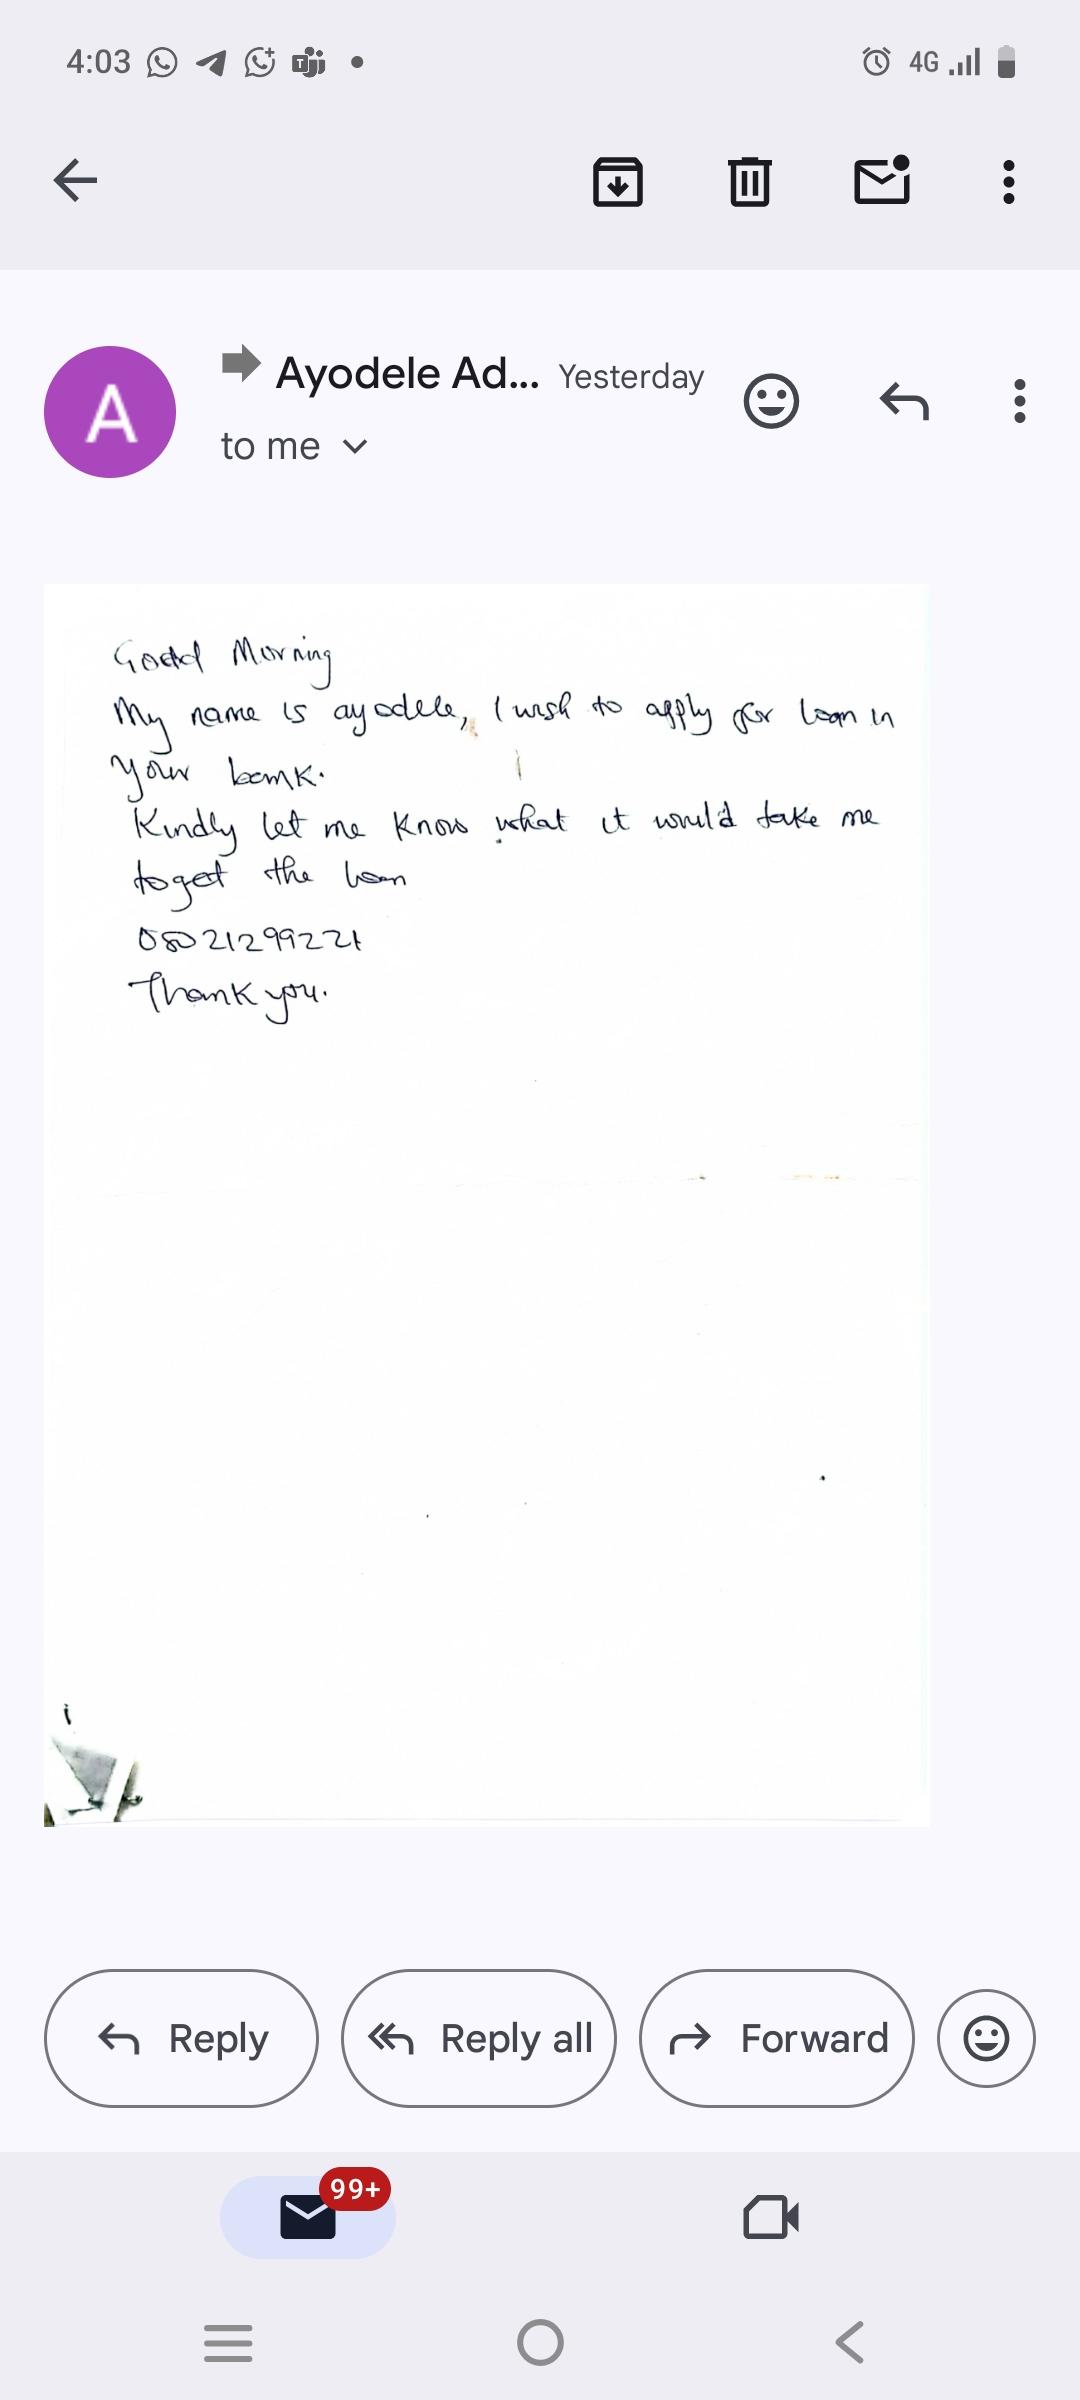 4:03
4G
Ayodele Ad... Yesterday
to me
A
Good Morning
My name is ayodele, I wish to apply for loan in
your bank.
Kindly let me know what it would take me
to get the loan
08021299221
Thank you.
Reply
Reply all
Forward
99+